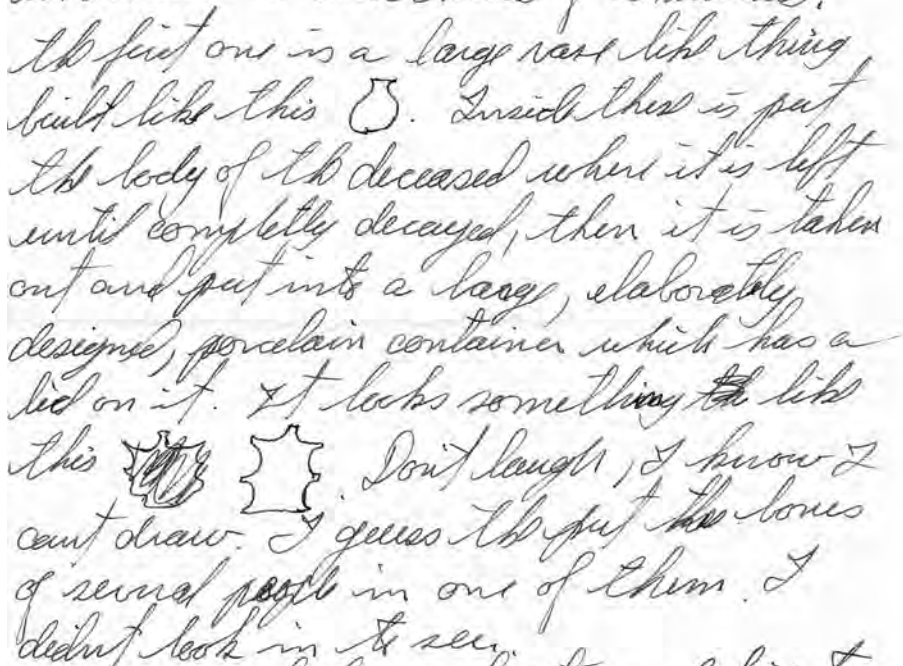 the first one is a large vase like thing
built like this . Inside these is put
the body of the deceased where it is left
until completly decayed, then it is taken
out and put into a large, elaborately
designed, porcelain container which has a
lid on it. It looks something like
this . Don't laugh, I know I
cant draw. I guess the put the bones
of several people in one of them. I
didn't look in to see.